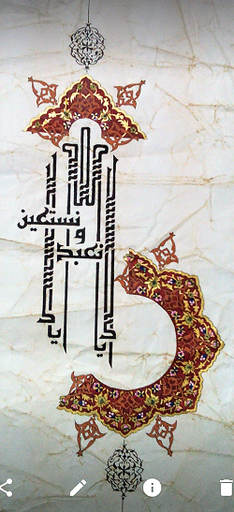 اياك نعبد و اياك نستعين